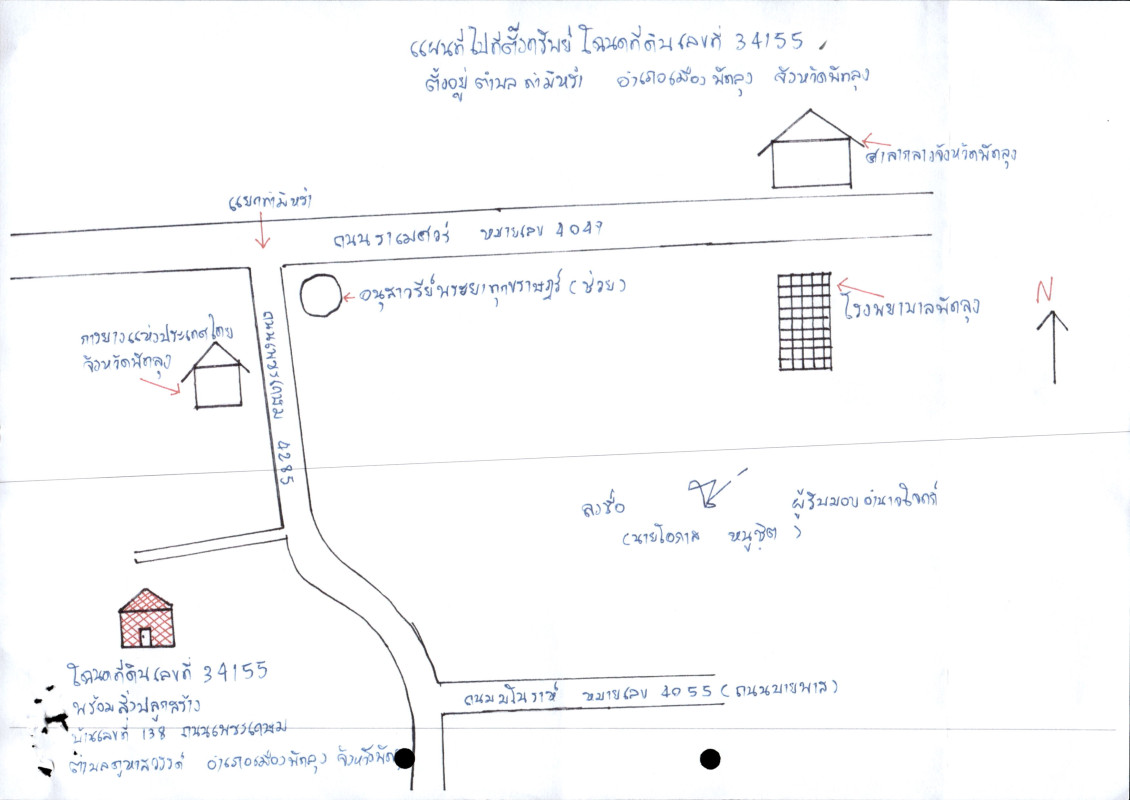 แผนที่ไปที่ตั้งทรัพย์ โฉนดที่ดินเลขที่ 34155
ตั้งอยู่ ตำบล ท่ามิหรำ อำเภอเมืองพัทลุง จังหวัดพัทลุง
ศาลากลางจังหวัดพัทลุง
แยกท่ามิหรำ
ถนนราเมศวร์ หมายเลข 4047
อนุสาวรีย์พระยาทุกขราษฎร์ (ช่วย)
โรงพยาบาลพัทลุง
N
การยางแห่งประเทศไทย
จังหวัดพัทลุง
ถนนเพชรเกษม 4285
ลงชื่อ ผู้รับมอบอำนาจโจทก์
(นายโอภาส หนูชิต)
โฉนดที่ดินเลขที่ 34155
พร้อมสิ่งปลูกสร้าง
บ้านเลขที่ 138 ถนนเพชรเกษม
ตำบลคูหาสวรรค์ อำเภอเมืองพัทลุง จังหวัดพัท
ถนนมโนราห์ หมายเลข 4055 (ถนนบายพาส)